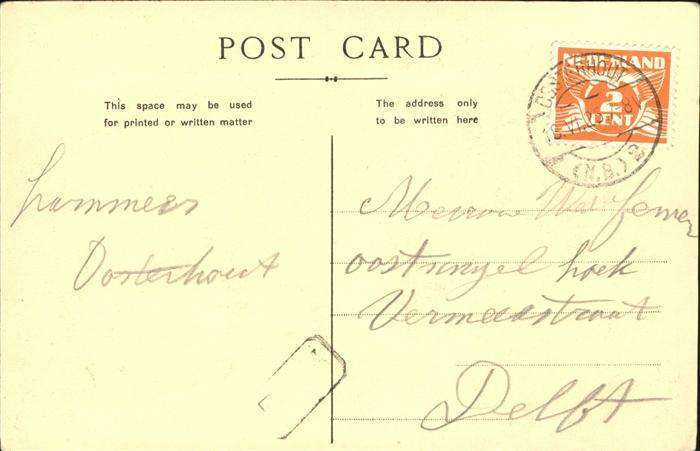 POST CARD
This space may be used
for printed or written matter
The address only
to be written here
NEDERLAND
2
CENT
OOSTERHOUT
(N.B.)
Lammers
Oosterhout
Mevrouw
oostsingel hoek
Vermeerstraat
Delft